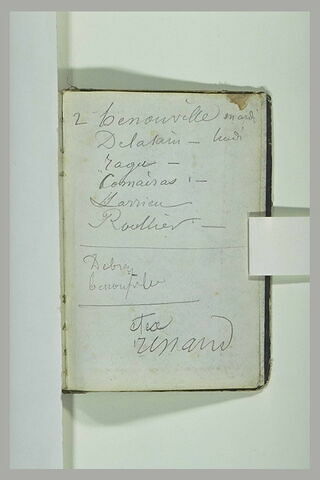 2 benouville mardi
Delalain – lundi
rague –
Comairas –
Larrieu
Roellier –
Debray
benouville